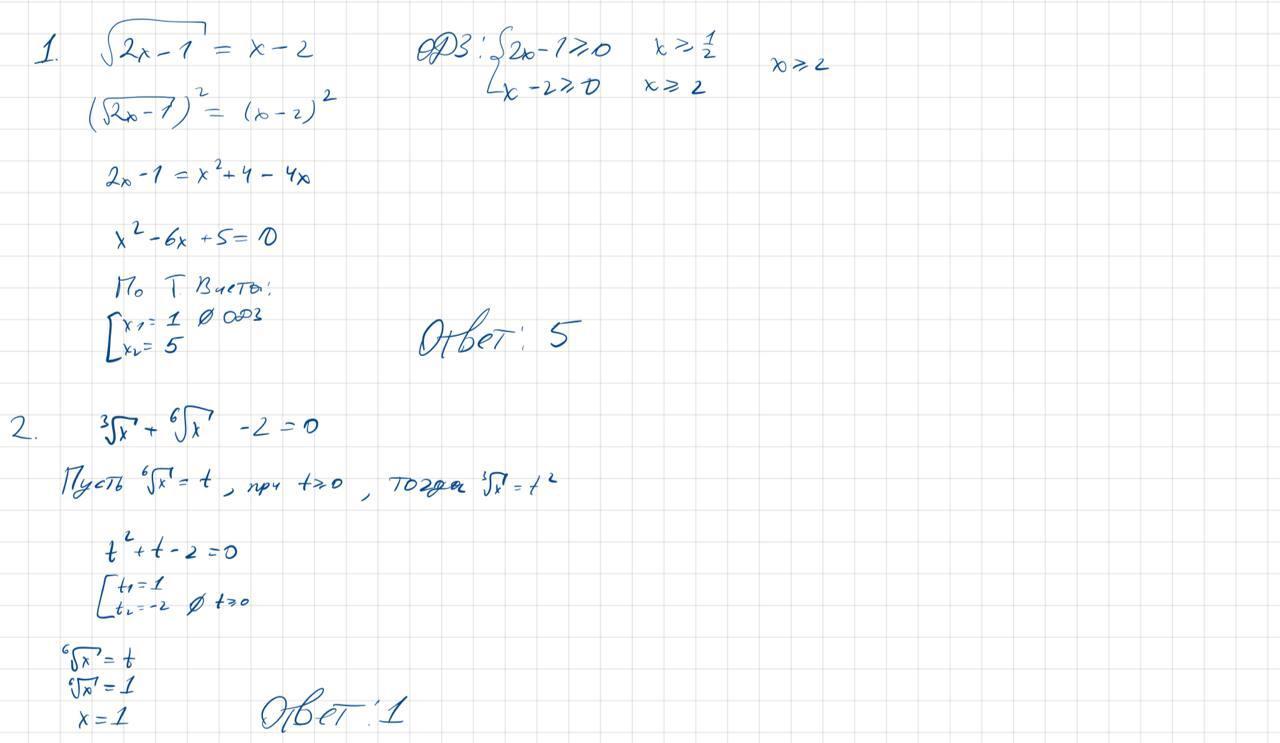 1. √(2x-1) = x-2 ОДЗ: { 2x-1≥0 x≥1/2 x≥2
x-2≥0 x≥2
(√(2x-1))² = (x-2)²
2x-1 = x²+4-4x
x²-6x+5=0
По Т. Виета:
[ x₁=1 ∅ ОДЗ
x₂=5 Ответ: 5
2. ³√x + ⁶√x -2=0
Пусть ⁶√x = t, при t≥0, тогда ³√x = t²
t²+t-2=0
[ t₁=1
t₂=-2 ∅ t≥0
⁶√x = t
⁶√x = 1
x=1 Ответ: 1